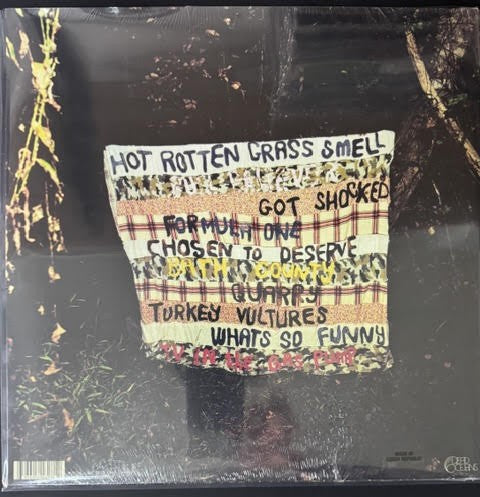 HOT ROTTEN GRASS SMELL
GOT SHOCKED
FORMULA ONE
CHOSEN TO DESERVE
BATH COUNTY
QUARRY
TURKEY VULTURES
WHATS SO FUNNY
TV IN THE GAS PUMP
MADE IN
CZECH REPUBLIC
DEAD
OCEANS